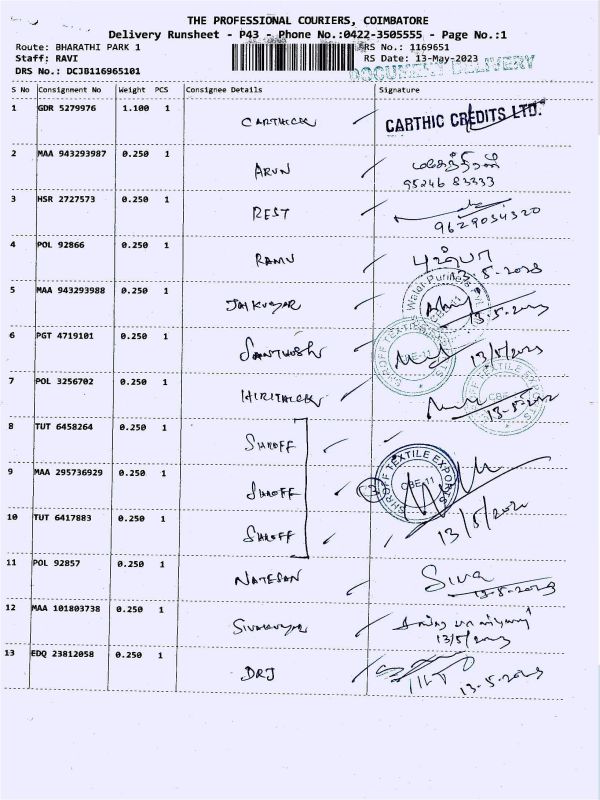 THE PROFESSIONAL COURIERS, COIMBATORE
Delivery Runsheet - P43 - Phone No.:0422-3505555 - Page No.:1
Route: BHARATHI PARK 1
RS No.: 1169651
Staff: RAVI
RS Date: 13-May-2023
DRS No.: DCJB116965101
DOCUMENT DELIVERY
S No Consignment No Weight PCS Consignee Details Signature
1 GDR 5279976 1.100 1 CARTHICK CARTHIC CREDITS LTD.
2 MAA 943293987 0.250 1 ARUN
95246 83333
3 HSR 2727573 0.250 1 REST
9629034320
4 POL 92866 0.250 1 RAMU
13-5-2023
5 MAA 943293988 0.250 1 JAIKUMAR
13-5-2023
6 PGT 4719101 0.250 1 SANTHOSH SHROFF TEXTILE
13/5/2023
7 POL 3256702 0.250 1 SHROFF TEXTILE EXPORTS
8 TUT 6458264 0.250 1 SHROFF
9 MAA 295736929 0.250 1 SHROFF SHROFF TEXTILE EXPORTS CBE-11
10 TUT 6417883 0.250 1 SHROFF
13/5/2023
11 POL 92857 0.250 1 NATESAN Siva
13-5-2023
12 MAA 101803738 0.250 1 SIVAKUMAR
13/5/2023
13 EDQ 23812058 0.250 1 DRJ
13-5-2023